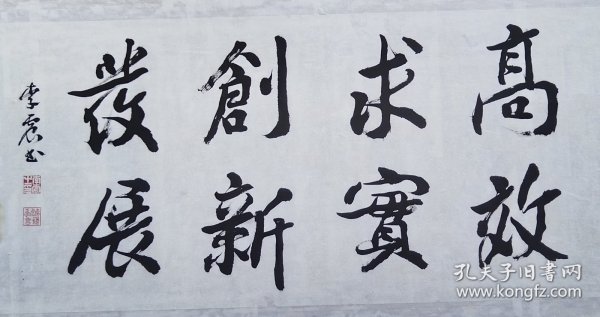 高效
求實
創新
發展
李震书
孔夫子旧书网
www.kongfz.com